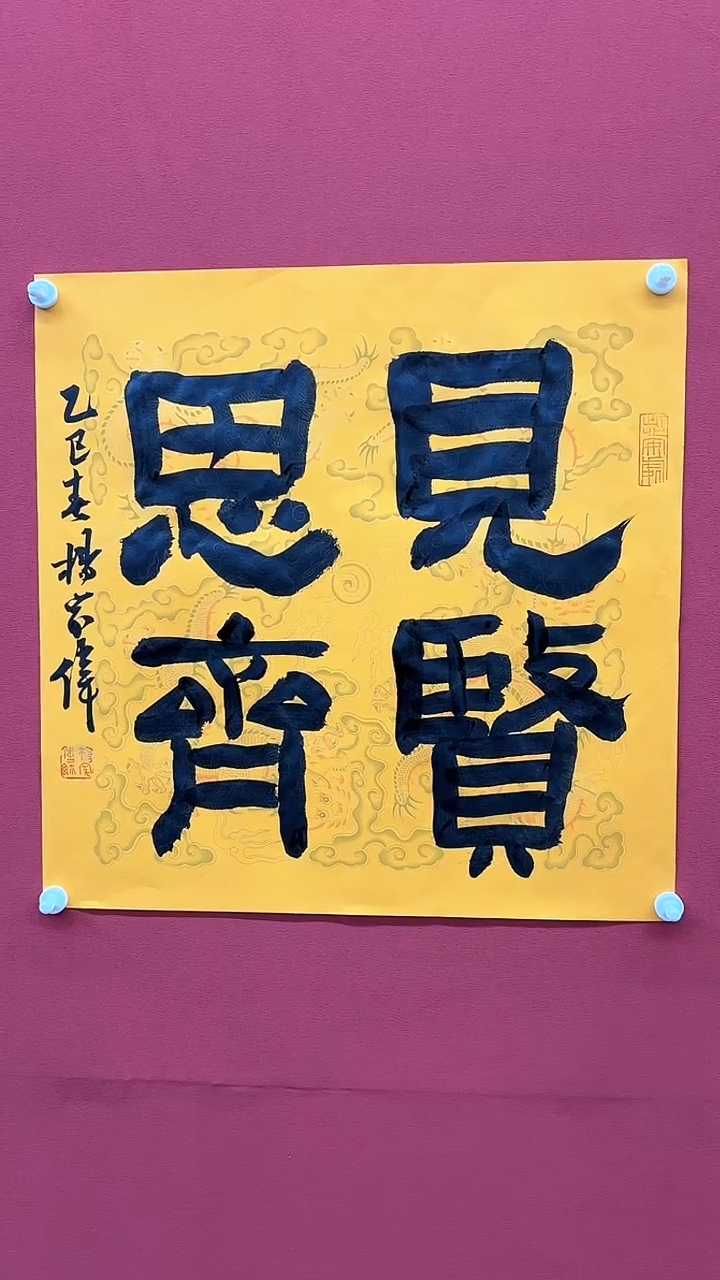 見賢
思齊
乙巳春楊家偉